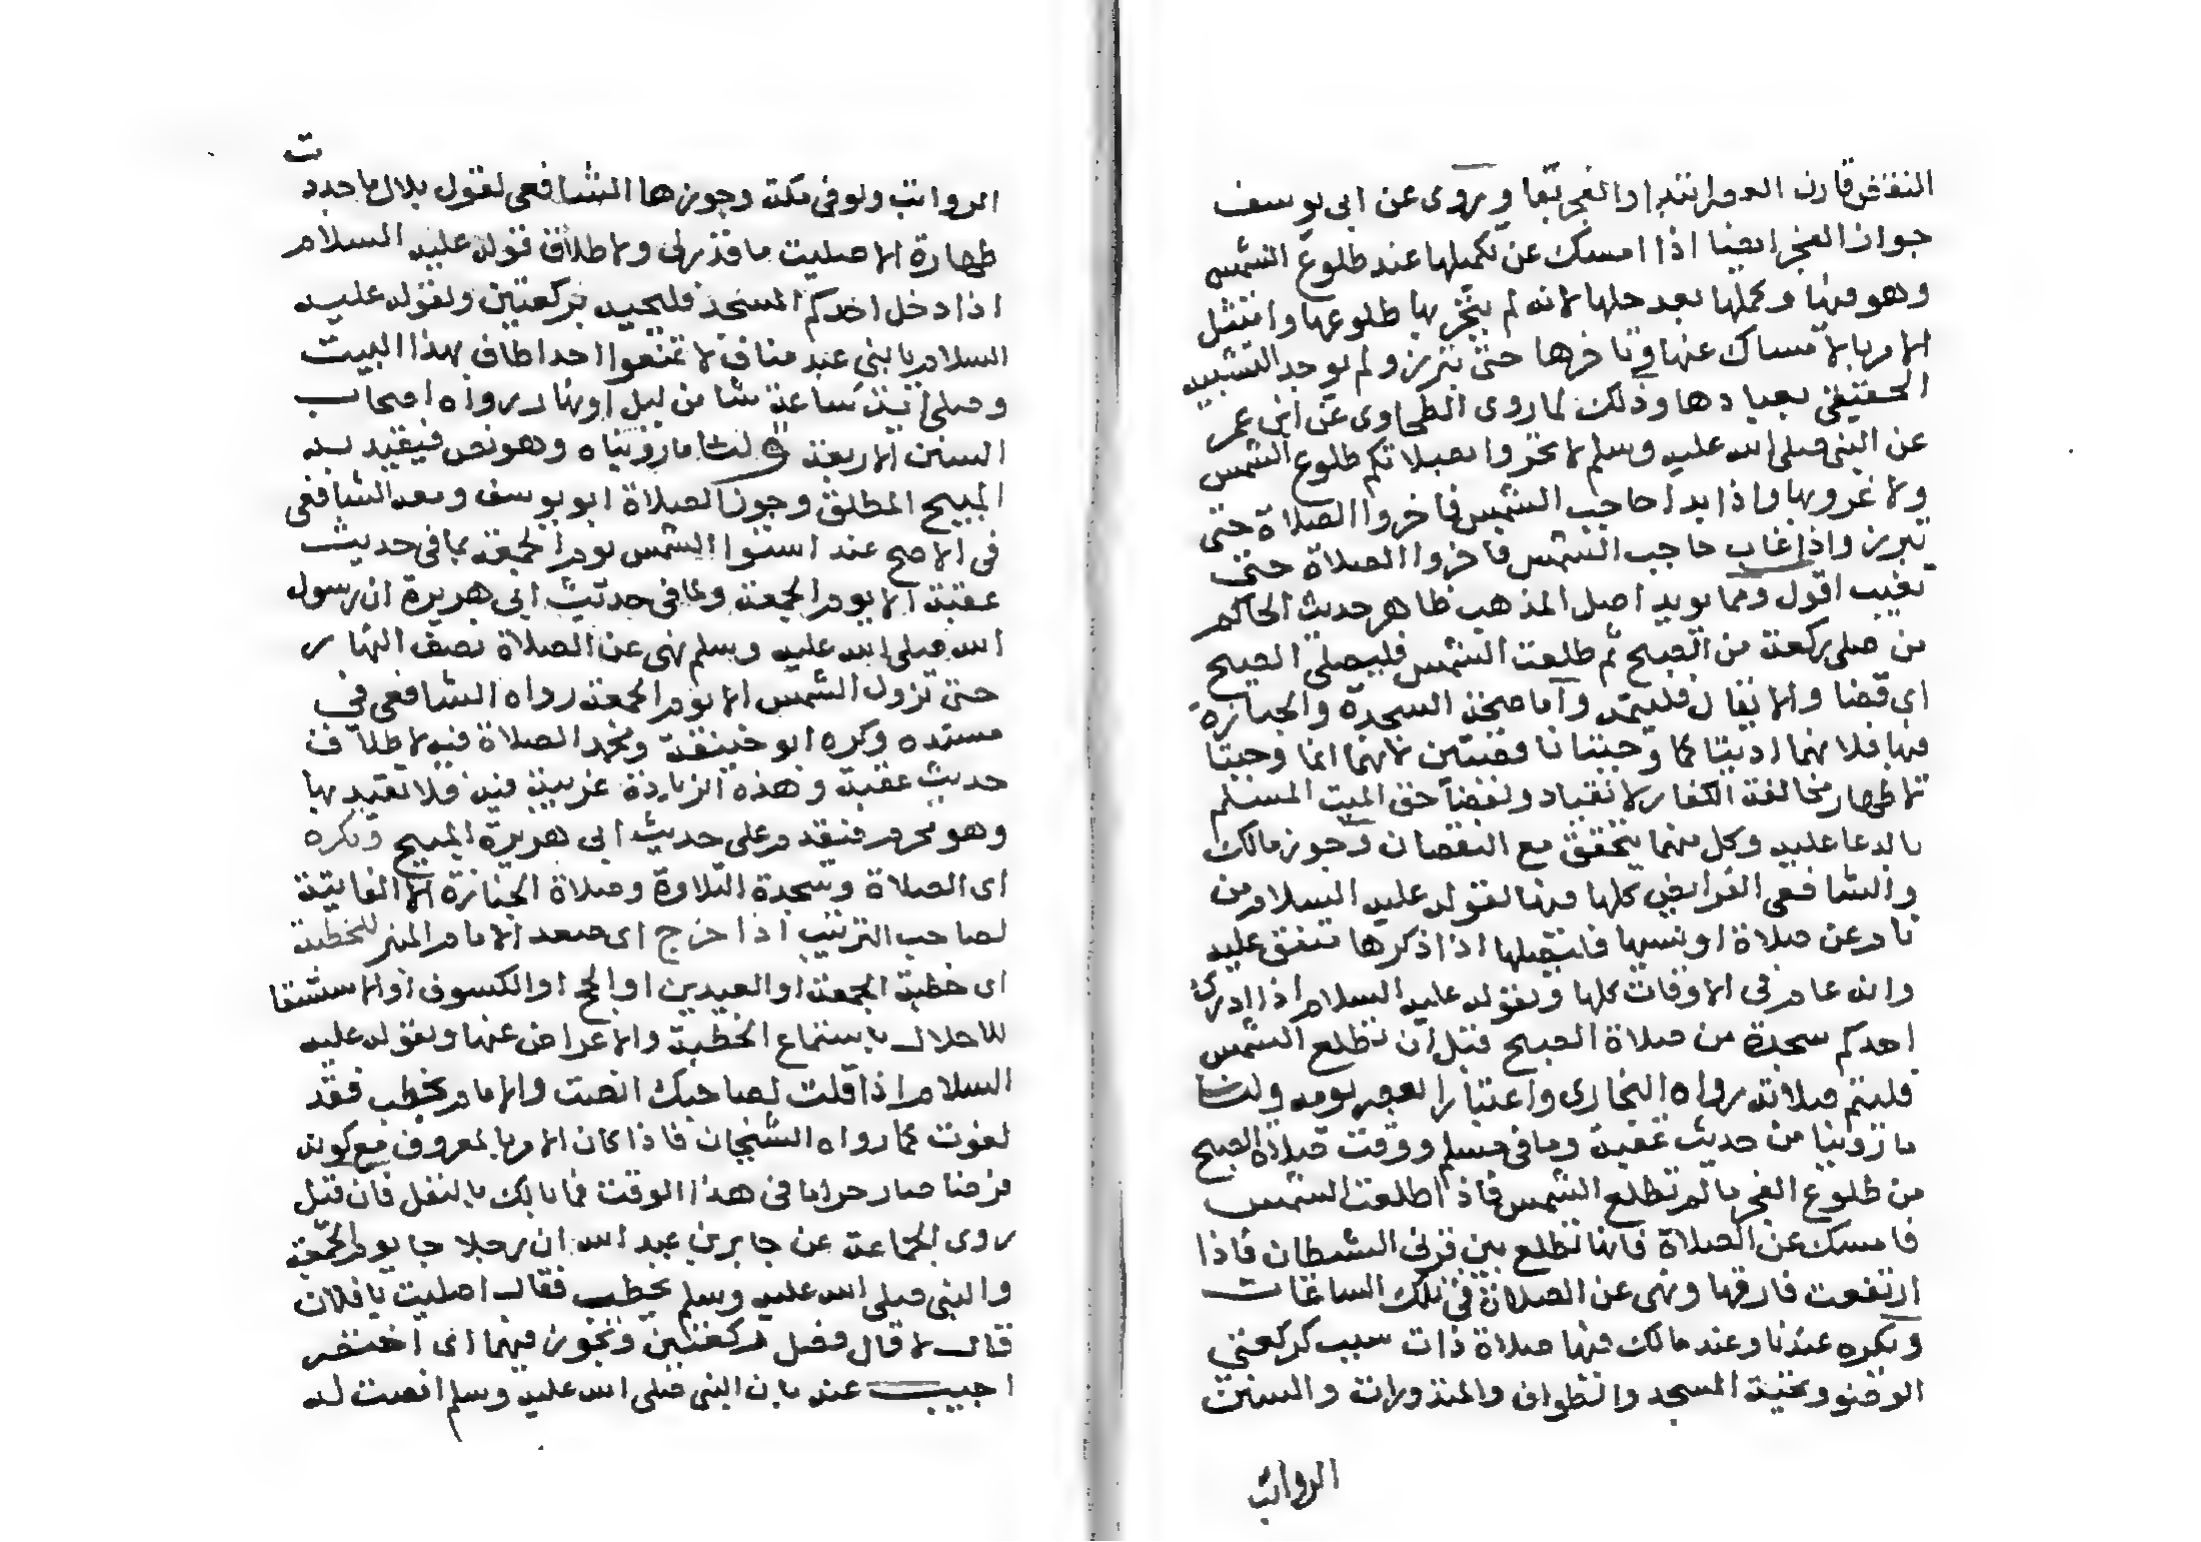 النقض قارن العصر ابتدا والفجر بقا ويروى عن ابى يوسف
جواز الفجر ايضا اذا امسك عن تكميلها عند طلوع الشمس
وهو فيها وكملها بعد حلها لانه لم يتحر بها طلوعها وامتثل
الامر بالامساك عنها وتاخرها حتى تبرز ولم يوجد التشبيه
الحقيقى بعبادها وذلك لما روى الطحاوى عن ابن عمر
عن النبى صلى الله عليه وسلم لا تحروا بصلاتكم طلوع الشمس
ولا غروبها واذا بدا حاجب الشمس فاخروا الصلاة حتى
تبرز واذا غاب حاجب الشمس فاخروا الصلاة حتى
تغيب اقول ومما يويد اصل المذهب ظاهر حديث الحاكم
من صلى ركعة من الصبح ثم طلعت الشمس فليصلى الصبح
اى قضا والا لقال فليتمه واما صحة السجدة والجنازة
فيها فلانهما اديتا كما وجبتا ناقصتين لانهما انما وجبتا
لاظهار مخالفة الكفار بلانقياد ولقضا حق الميت المسلم
بالدعا عليه وكل منهما يتحقق مع النقصان وجوز مالك
والشافعى الفرايض كلها فيها لقوله عليه السلام من
نام عن صلاة او نسيها فليصلها اذا ذكرها متفق عليه
وانه عام فى الاوقات كلها ولقوله عليه السلام اذا ادرك
احدكم سجدة من صلاة الصبح قبل ان تطلع الشمس
فليتم صلاته رواه البخارى واعتبارا بعصر يومه ولنا
ما روينا من حديث عقبة وما فى مسلم ووقت صلاة الصبح
من طلوع الفجر ما لم تطلع الشمس فاذا طلعت الشمس
فامسك عن الصلاة فانها تطلع بين قرنى الشيطان فاذا
ارتفعت فارقها ونهى عن الصلاة فى تلك الساعات
ويكره عندنا وعند مالك فيها صلاة ذات سبب كركعتى
الوضو وتحية المسجد والطواف والمنذورات والسنن
الرواتب
ت
الرواتب ولو فى مكة وجوزها الشافعى لقول بلال ما احدد
طهارة الا صليت ما قدر لى ولاطلاق قوله عليه السلام
اذا دخل احدكم المسجد فليحيه بركعتين ولقوله عليه
السلام يا بنى عبد مناف لا تمنعوا احدا طاف بهذا البيت
وصلى اية ساعة شا من ليل او نهار رواه اصحاب
السنن الاربعة ولنا ما رويناه وهو نص فيقيد به
المبيح المطلق وجوز الصلاة ابو يوسف ومعه الشافعى
فى الاصح عند استوا الشمس يوم الجمعة بما فى حديث
عقبة الا يوم الجمعة ولما فى حديث ابى هريرة ان رسول
الله صلى الله عليه وسلم نهى عن الصلاة نصف النهار
حتى تزول الشمس الا يوم الجمعة رواه الشافعى فى
مسنده وكره ابو حنيفة ومحمد الصلاة فيه لاطلاق
حديث عقبة وهذه الزيادة غريبة فيه فلا تقيد بها
وهو محرم فيقدم على حديث ابى هريرة المبيح ويكره
اى الصلاة وسجدة التلاوة وصلاة الجنازة الا الفايتة
لصاحب الترتيب اذا خرج اى صعد الامام المنبر للخطبة
اى خطبة الجمعة او العيدين او الحج او الكسوف او الاستسقا
للاخلال باستماع الخطبة والاعراض عنها ولقوله عليه
السلام اذا قلت لصاحبك انصت والامام يخطب فقد
لغوت كما رواه الشيخان فاذا كان الامر بالمعروف مع كونه
فرضا صار حراما فى هذا الوقت فما بالك بالنفل فان قيل
روى الجماعة عن جابر بن عبد الله ان رجلا جا يوم الجمعة
والنبى صلى الله عليه وسلم يخطب فقال اصليت يا فلان
قال لا قال فصل ركعتين وتجوز فيهما اى اختصر
اجيب عنه بان النبى صلى الله عليه وسلم انصت له